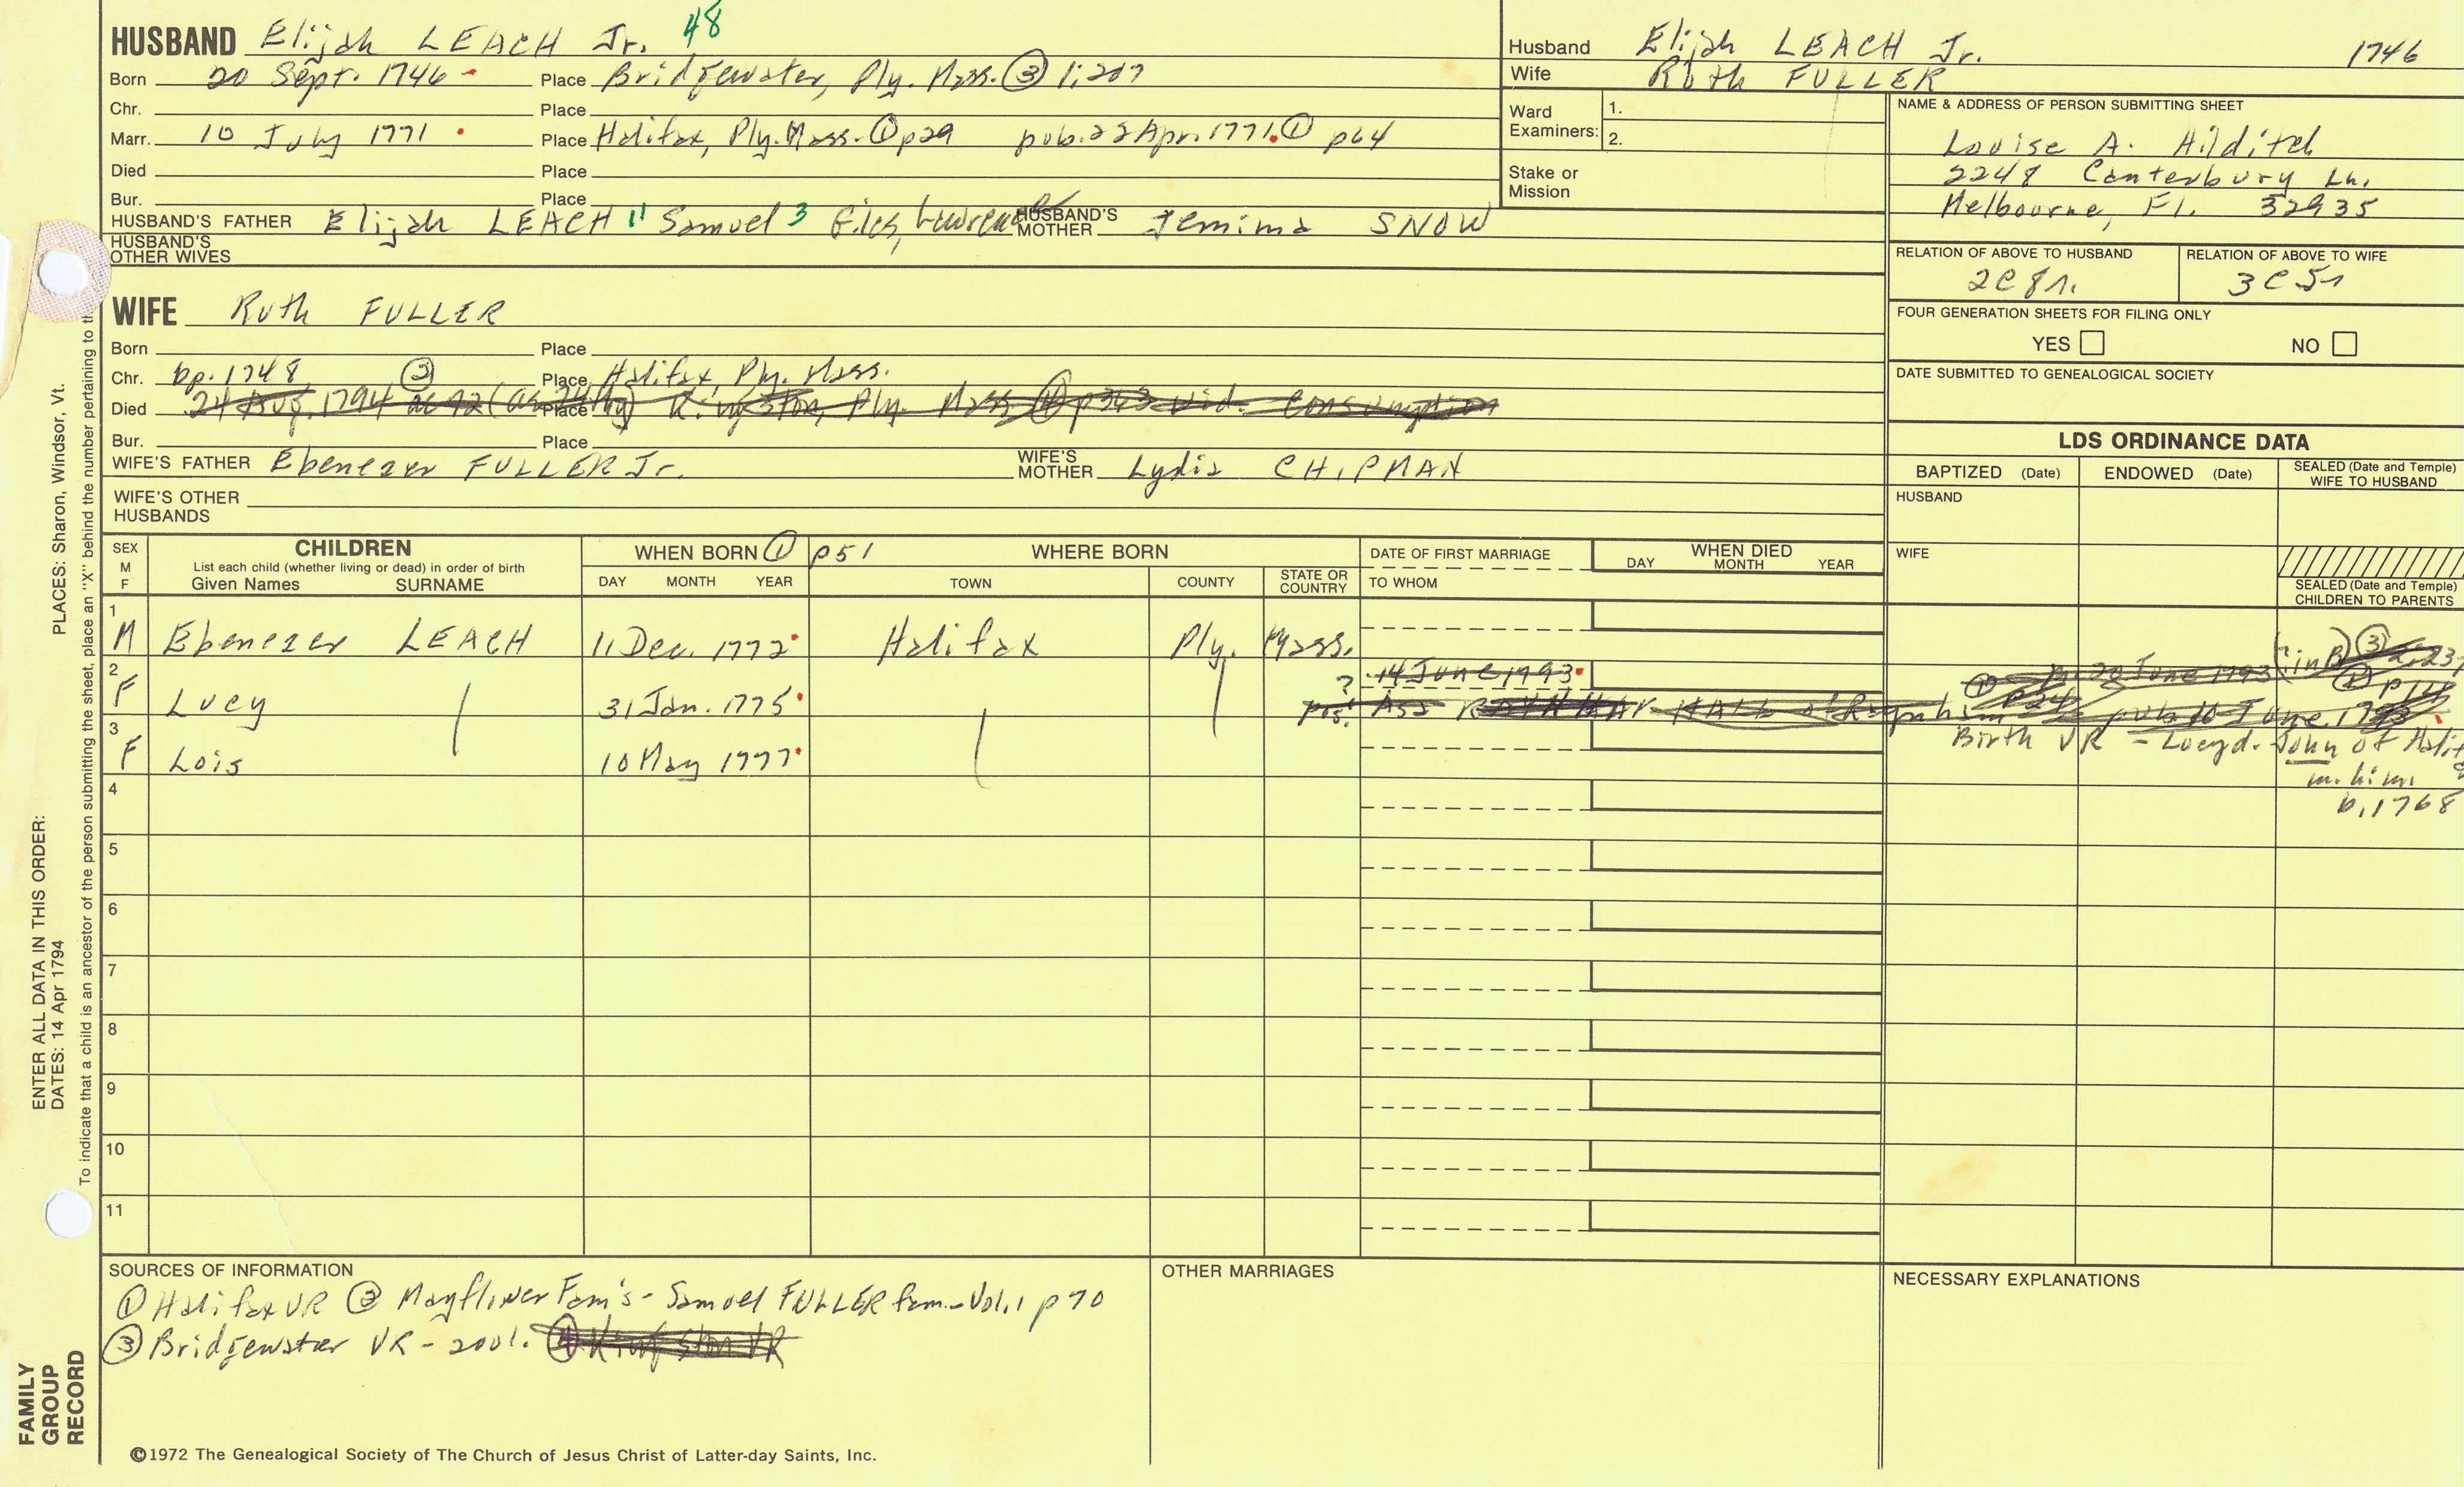 HUSBAND Elijah LEACH Jr. 48
Born 20 Sept. 1746 Place Bridgewater, Ply. Mass. ③ 1:207
Chr. Place
Marr. 10 July 1771 Place Halifax, Ply. Mass. ① p29 pub. 22 Apr. 1771. ① p64
Died Place
Bur. Place
HUSBAND'S FATHER Elijah LEACH Samuel 3 Giles, Lawrence HUSBAND'S MOTHER Jemima SNOW
HUSBAND'S OTHER WIVES
Husband Elijah LEACH Jr. 1746
Wife Ruth FULLER
Ward Examiners: 1.
2.
Stake or Mission
NAME & ADDRESS OF PERSON SUBMITTING SHEET
Louise A. Hilditch
2248 Canterbury Ln.
Melbourne, Fl. 32935
RELATION OF ABOVE TO HUSBAND
2C8r.
RELATION OF ABOVE TO WIFE
3C5r
FOUR GENERATION SHEETS FOR FILING ONLY
YES NO
DATE SUBMITTED TO GENEALOGICAL SOCIETY
WIFE Ruth FULLER
Born Place
Chr. bp. 1748 ③ Place Halifax, Ply. Mass.
Died 24 Aug. 1794 Place Kingston, Ply. Mass. p343 wid. Consumption
Bur. Place
WIFE'S FATHER Ebenezer FULLER Jr. WIFE'S MOTHER Lydia CHIPMAN
WIFE'S OTHER HUSBANDS
LDS ORDINANCE DATA
BAPTIZED (Date) ENDOWED (Date) SEALED (Date and Temple) WIFE TO HUSBAND
HUSBAND
WIFE
SEALED (Date and Temple) CHILDREN TO PARENTS
SEX M F
CHILDREN
List each child (whether living or dead) in order of birth
Given Names SURNAME
WHEN BORN ① p51
DAY MONTH YEAR
WHERE BORN
TOWN COUNTY STATE OR COUNTRY
DATE OF FIRST MARRIAGE
TO WHOM
WHEN DIED
DAY MONTH YEAR
1 M Ebenezer LEACH 11 Dec. 1772 Halifax Ply. Mass.
2 F Lucy 31 Jan. 1775 ? 14 June 1793
3 F Lois 10 May 1777
Birth VR - Lucy d. John of
m. him
b. 1768
4
5
6
7
8
9
10
11
SOURCES OF INFORMATION
① Halifax VR ② Mayflower Fam's - Samuel FULLER fam. - Vol. 1 p 70
③ Bridgewater VR - 2 vol. ④ Kingston VR
OTHER MARRIAGES
NECESSARY EXPLANATIONS
©1972 The Genealogical Society of The Church of Jesus Christ of Latter-day Saints, Inc.
FAMILY GROUP RECORD
ENTER ALL DATA IN THIS ORDER:
DATES: 14 Apr 1794
PLACES: Sharon, Windsor, Vt.
To indicate that a child is an ancestor of the person submitting the sheet, place an "X" behind the number pertaining to